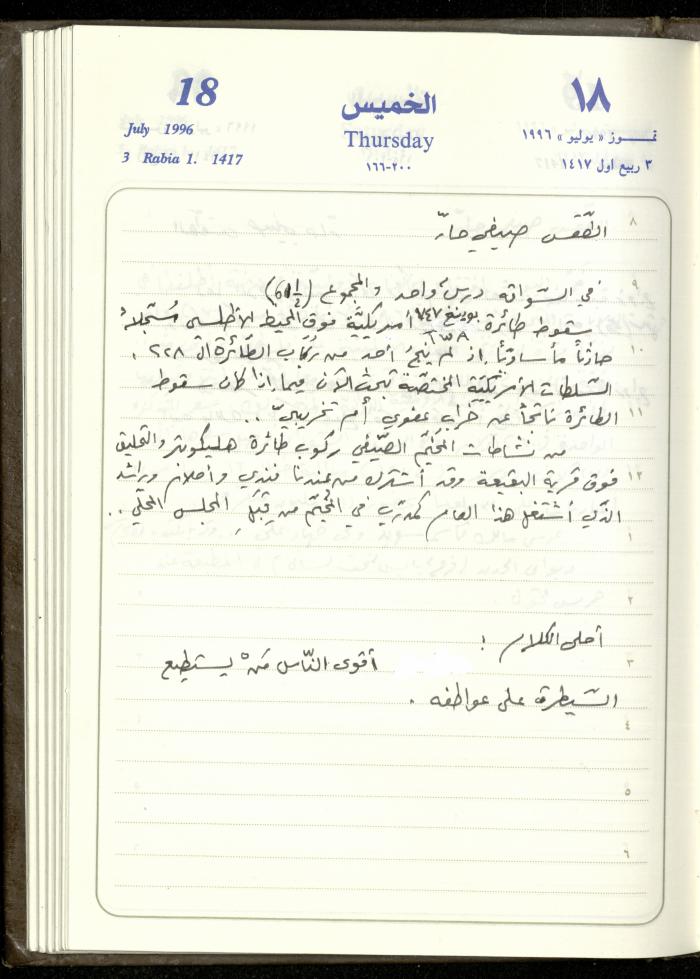 18
الخميس
١٨
July 1996
Thursday
تمــوز « يوليو » ١٩٩٦
3 Rabia 1. 1417
٢٠٠-١٦٦
٣ ربيع اول ١٤١٧
٨ الطّقس صيفي حارّ
٩ في السّواقه درسٌ واحد والمجموع (61½)
سقوط طائرة بوينغ ٧٤٧ أمريكيّة فوق المحيط الأطلسي مُسَجّلةً
١٠ حادثاً مأساويّاً إذ لم ينجُ أحد من ركّاب الطّائرة ال ٢٢٨ .
السّلطات الأمريكيّة المختصّة تبحث الآن فيما إذا كان سقوط
١١ الطائرة ناتجاً عن خراب عفوي أم تخريبيّ ..
من نشاطات المخيّم الصّيفي ركوب طائرة هليكوبتر والتحليق
١٢ فوق قرية البقيعة وقد أشترك من عندنا فندي وأصلان ورائد
الذي أشتغل هذا العام كمدرّب في المخيّم من قِبَلِ المجلس المحلّي ..
١
٢
أحلى الكلام :
٣ أقوى النّاس مَنْ يستطيع
السّيطرة على عواطفه .
٤
٥
٦